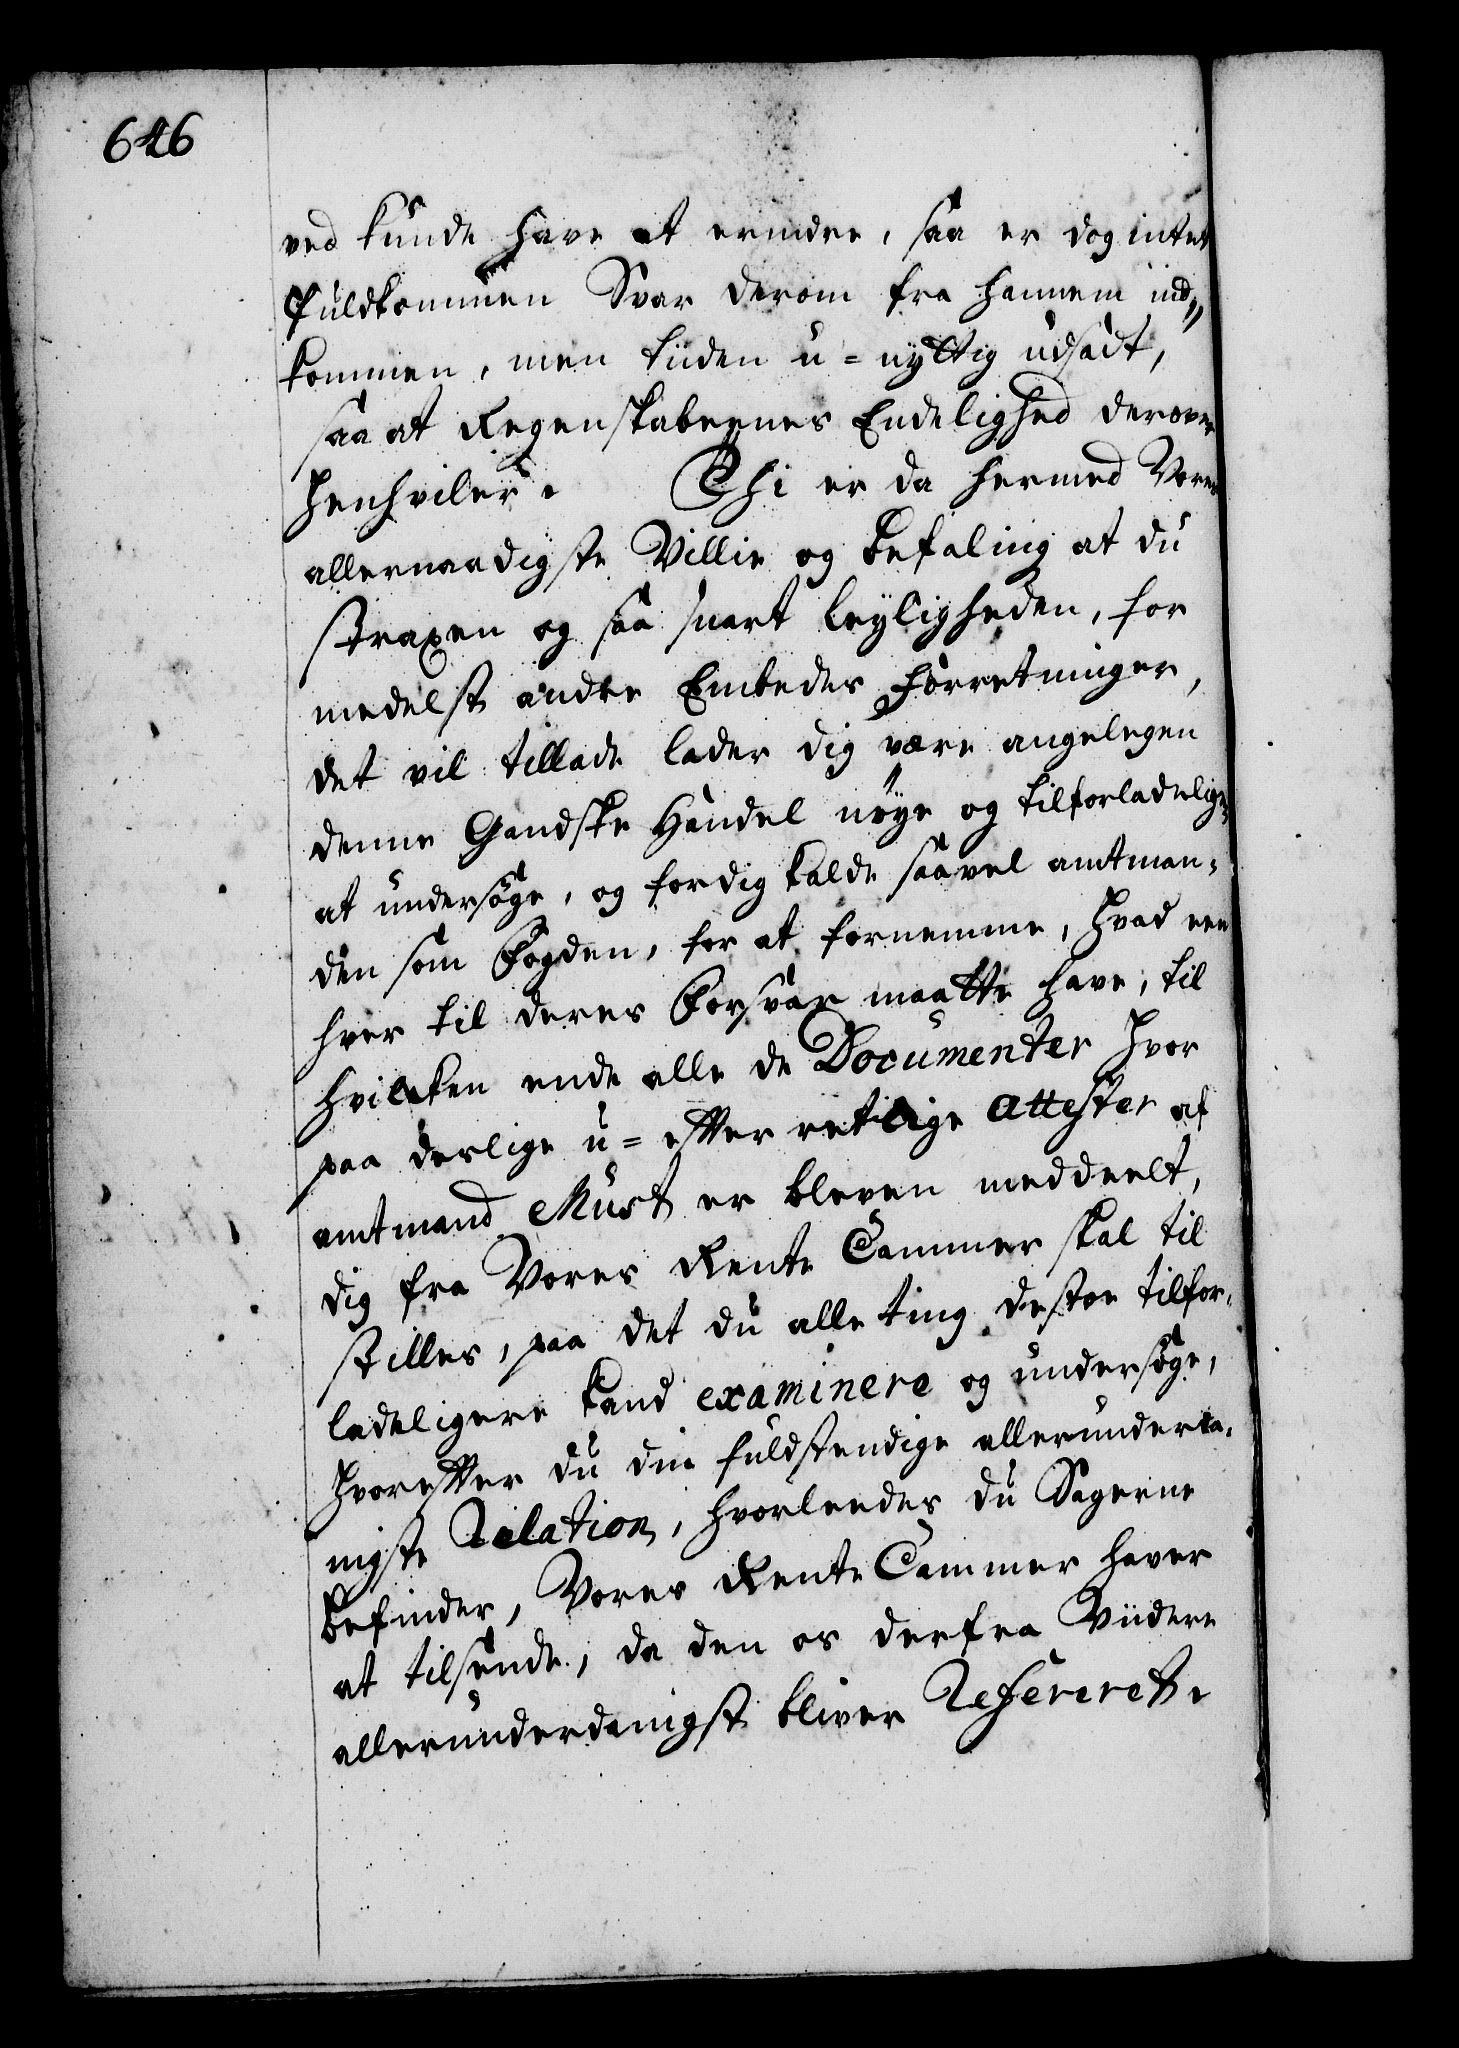 646
ved kunde have at erindre, saa er dog intet
Fuldkommen Svar derom fra hannem ind„
kommen, men tiiden u=nyttig udsadt,
saa at Regenskabernes Endelighed derover
henhviler. Thi er da hermed Vores
allernaadigste Villie og befaling at du
straxen og saa snart leyligheden, for
medelst andre Embedes Forretninger,
det vil tillade lader dig være angelegen
denne Gandske Handel nøye og tilforladelig
at undersøge, og fordig kalde saavel amtman-
den som Fogden, for at fornemme, hvad een
hver til deres Forsvar maatte have, til
hvilcken ende alle de Documenter hvor
paa derlige u=efterretlige attester af
amtmand Must er bleven meddeelt,
dig fra Vores Rente Cammer skal til
stilles, paa det du alle ting destoe tilfor-
ladeligere kand examinere og undersøge,
hvorefter du din fuldstendige allerunderda-
nigste Relation, hvorleedes du Sagerne
befinder, Vores Rente Cammer haver
at tilsende, da den os derfra Viidere
allerunderdanigst bliver Refereret.